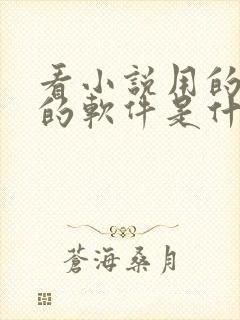 看小說用的
的軟件是什
蒼海桑月